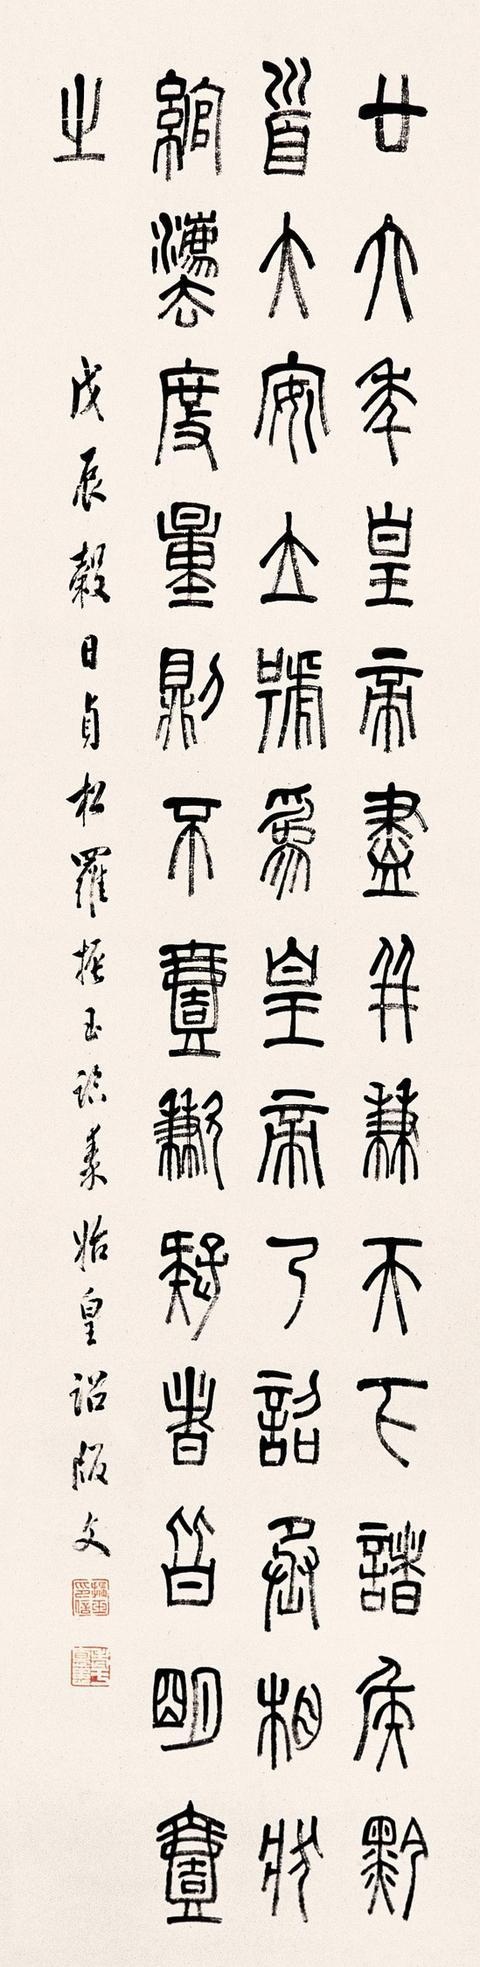 廿六年皇帝盡并兼天下諸侯黔
首大安立號爲皇帝乃詔丞相狀
綰灋度量則不壹歉疑者皆明壹
之
戊辰穀日貞松羅振玉臨秦始皇詔版文
振玉印信